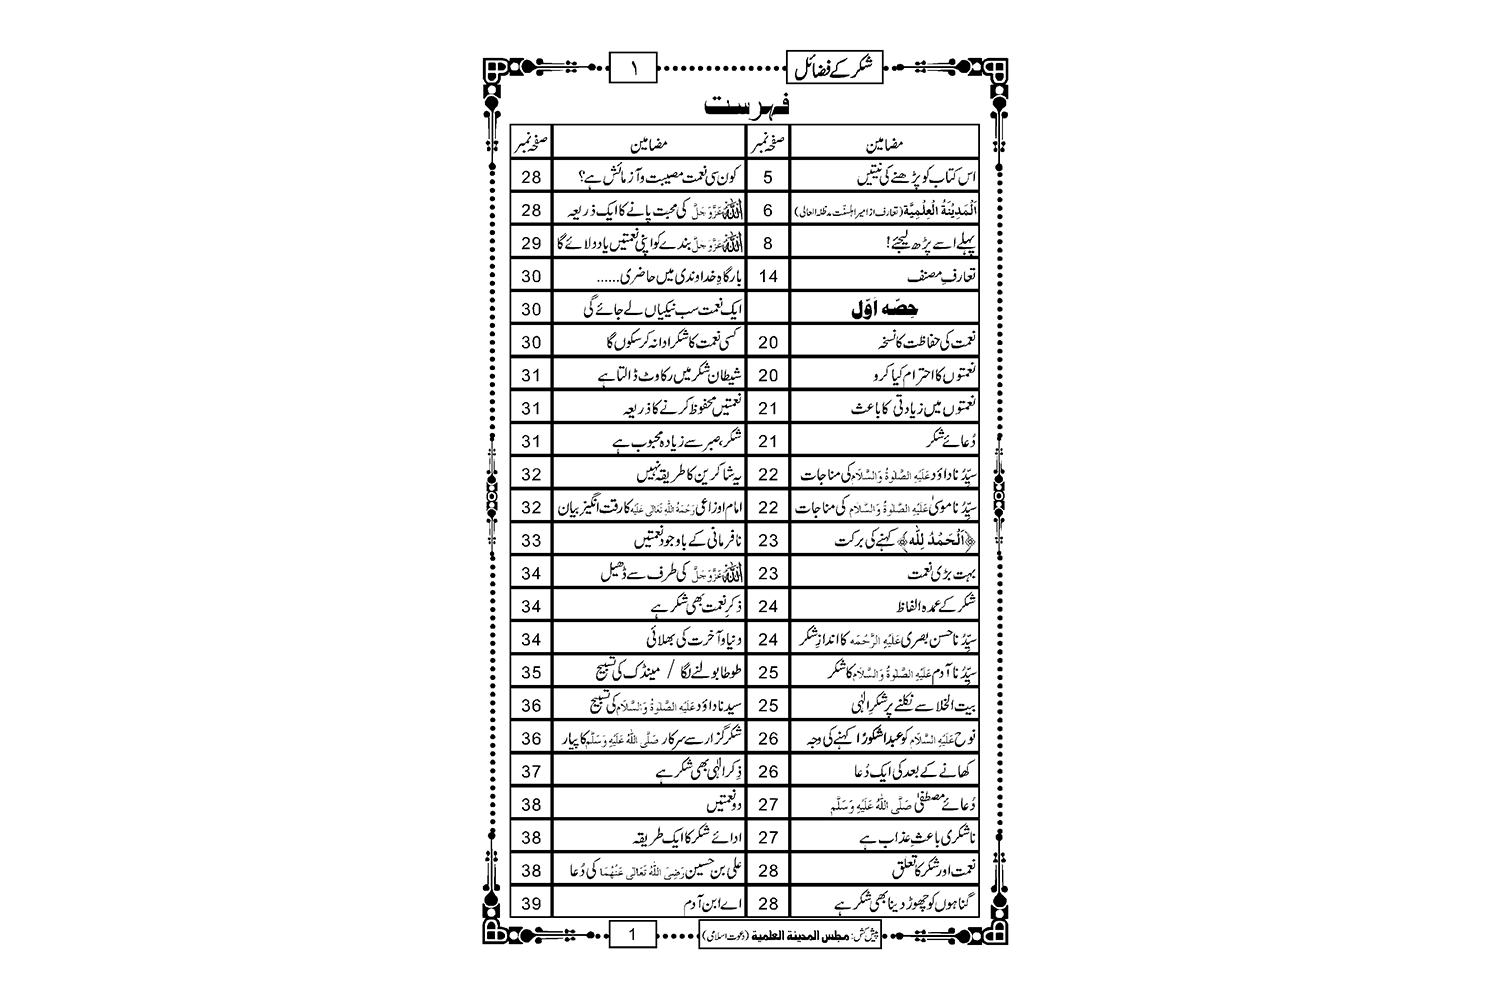 شکر کے فضائل ۱
فہرست
مضامین صفحہ نمبر مضامین صفحہ نمبر
اس کتاب کو پڑھنے کی نیتیں 5 کون سی نعمت مصیبت و آزمائش ہے؟ 28
اَلْمَدِیْنَۃُ الْعِلْمِیَّۃ (تعارف از امیر اہلسنّت مدظلہ العالی) 6 اللہ عَزَّوَجَلَّ کی محبت پانے کا ایک ذریعہ 28
پہلے اسے پڑھ لیجئے! 8 اللہ عَزَّوَجَلَّ بندے کو اپنی نعمتیں یاد دلائے گا 29
تعارفِ مصنف 14 بارگاہِ خداوندی میں حاضری...... 30
حِصّہ اَوّل ایک نعمت سب نیکیاں لے جائے گی 30
نعمت کی حفاظت کا نسخہ 20 کسی نعمت کا شکر ادا نہ کر سکوں گا 30
نعمتوں کا احترام کیا کرو 20 شیطان شکر میں رکاوٹ ڈالتا ہے 31
نعمتوں میں زیادتی کا باعث 21 نعمتیں محفوظ کرنے کا ذریعہ 31
دُعائے شکر 21 شکر، صبر سے زیادہ محبوب ہے 31
سیِّدُنا داؤد عَلَیْہِ الصَّلٰوۃُ وَالسَّلَام کی مناجات 22 یہ شاکرین کا طریقہ نہیں 32
سیِّدُنا موسیٰ عَلَیْہِ الصَّلٰوۃُ وَالسَّلَام کی مناجات 22 امام اوزاعی رَحْمَۃُ اللہِ تَعَالٰی عَلَیْہ کا رقت انگیز بیان 32
﴿اَلْحَمْدُ لِلّٰہ﴾ کہنے کی برکت 23 نافرمانی کے باوجود نعمتیں 33
بہت بڑی نعمت 23 اللہ عَزَّوَجَلَّ کی طرف سے ڈھیل 34
شکر کے عمدہ الفاظ 24 ذکرِ نعمت بھی شکر ہے 34
سیِّدُنا حسن بصری عَلَیْہِ الرَّحْمَہ کا اندازِ شکر 24 دنیا و آخرت کی بھلائی 34
سیِّدُنا آدم عَلَیْہِ الصَّلٰوۃُ وَالسَّلَام کا شکر 25 طوطا بولنے لگا / مینڈک کی تسبیح 35
بیت الخلا سے نکلنے پر شکرِ الٰہی 25 سیدنا داؤد عَلَیْہِ الصَّلٰوۃُ وَالسَّلَام کی تسبیح 36
نوح عَلَیْہِ السَّلَام کو عبدًا شکورًا کہنے کی وجہ 26 شکر گزار سے سرکار صَلَّی اللہُ عَلَیْہِ وَسَلَّم کا پیار 36
کھانے کے بعد کی ایک دُعا 26 ذِکرِ الٰہی بھی شکر ہے 37
دُعائے مصطفٰی صَلَّی اللہُ عَلَیْہِ وَسَلَّم 27 دو نعمتیں 38
ناشکری باعثِ عذاب ہے 27 ادائے شکر کا ایک طریقہ 38
نعمت اور شکر کا تعلق 28 علی بن حسین رَضِیَ اللہُ تَعَالٰی عَنْہُمَا کی دُعا 38
گناہوں کو چھوڑ دینا بھی شکر ہے 28 اے ابن آدم 39
پیش کش: مجلس المدینۃ العلمیۃ (دعوتِ اسلامی) 1